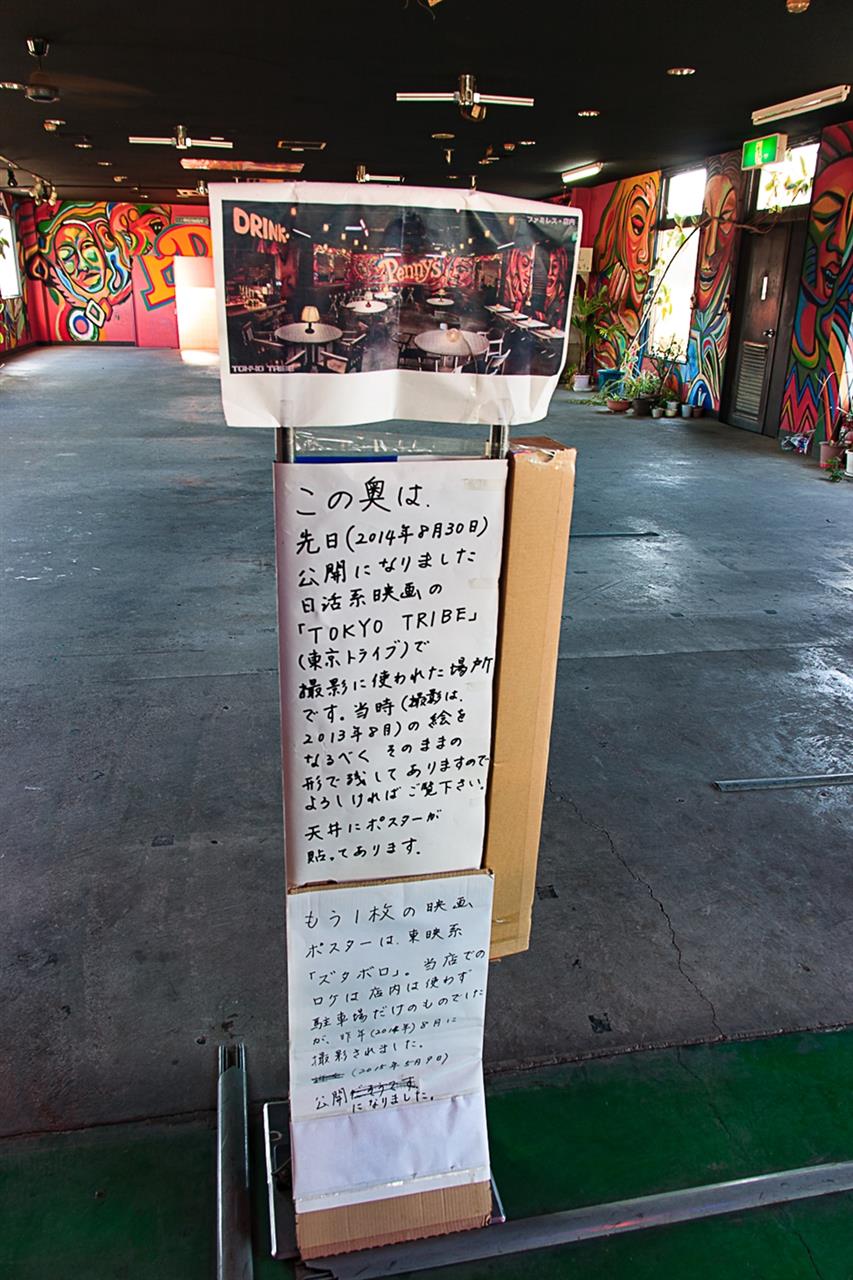 DRINK
ファミレス・店内
Penny's
TOKYO TRIBE
この奥は.
先日(2014年8月30日)
公開になりました
日活系映画の
「TOKYO TRIBE」
(東京トライブ)で
撮影に使われた場所
です。当時(撮影は、
2013年8月)の絵を
なるべく そのままの
形で残してありますので
よろしければご覧下さい。
天井にポスターが
貼ってあります.
もう1枚の映画
ポスターは、東映系
「ズタボロ」。当店での
ロケは店内は使わず
駐車場だけのものでした
が、昨年(2014年)8月に
撮影されました。
(2015年5月9日)
公開
になりました。